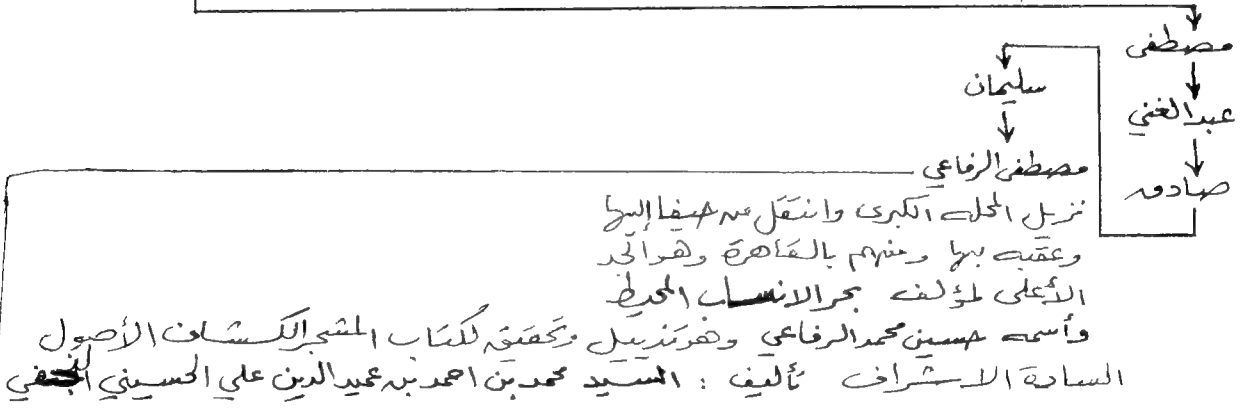 مصطفى
عبدالغني
صادق
سليمان
مصطفى الرفاعي
نزيل المحلة الكبرى وانتقل من صيفا إليها
وعقبه بها ومنهم بالقاهرة وهو الجد
الأعلى لمؤلف بحر الانساب المحيط
وأسمه حسين محمد الرفاعي وهو تذييل وتحقيق لكتاب المشجر الكشاف الأصول
السادة الاشراف تأليف : السيد محمد بن احمد بن عميد الدين علي الحسيني النجفي